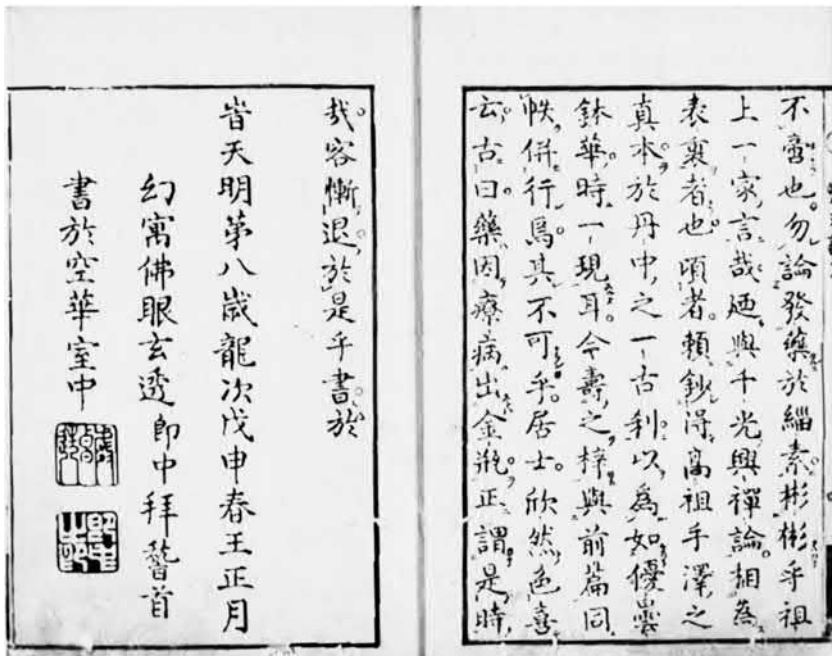 不啻也。勿論發藥於緇素。彬彬乎祖
上一家言哉。廼與千光興禪論。相為
表裏者也。頃者。賴鈔得高祖手澤之
真本。於丹中之一古刹。以為如優曇
鉢華。時一現耳。今壽之梓。與前篇同
帙。併行焉。其不可乎。居士。欣然色喜
云。古曰。藥因療病出金瓶。正謂是時
哉。客慚退。於是乎書。於
旹天明第八歲龍次戊申春王正月
幻寓佛眼玄透即中拜稽首
書於空華室中